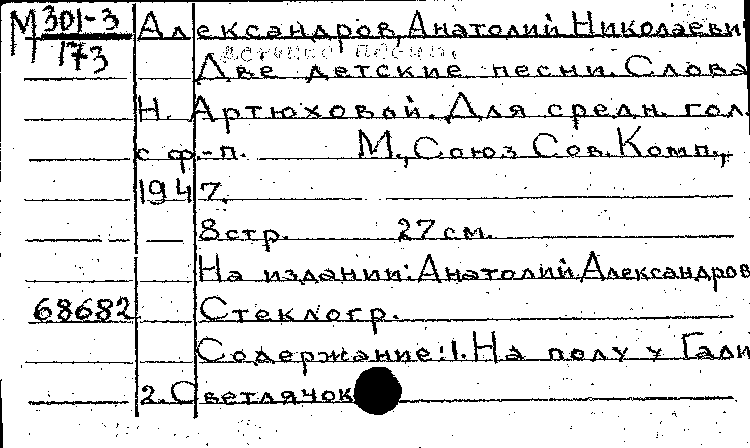 М 301-3 Александров, Анатолий Николаеви
173
Две детские песни. Слова
Н. Артюховой. Для средн. гол.
с ф.-п. М., Союз Сов. Комп.,
1947.
8 стр. 27 см.
На издании: Анатолий Александров
68682 Стеклогр.
Содержание: 1. На полу у Гали
2. Светлячок